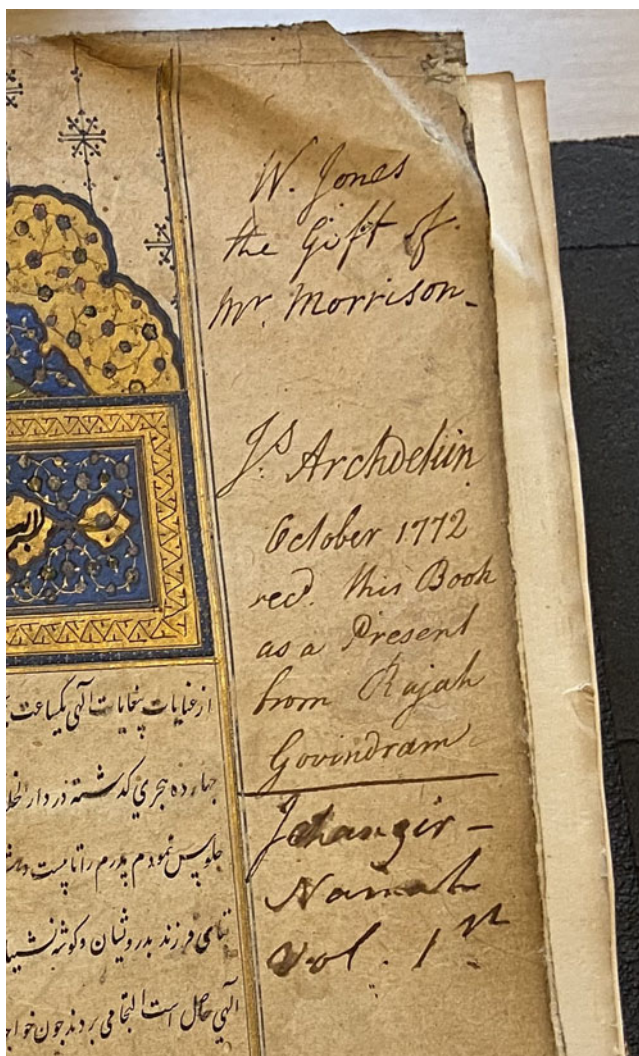 W. Jones
the Gift of
Mr. Morrison.
Js. Archdekin
October 1772
recd. this Book
as a Present
from Rajah
Govindram
Jehangir -
Namah
Vol. 1st
از عنایات بیغایات الهی یکساعت
هجری کذشته در دار
جلوس نمودم پدرم را تا بیست
فرزند بدرویشان و کوشه
الهی حاصل است التجا می بردند چون